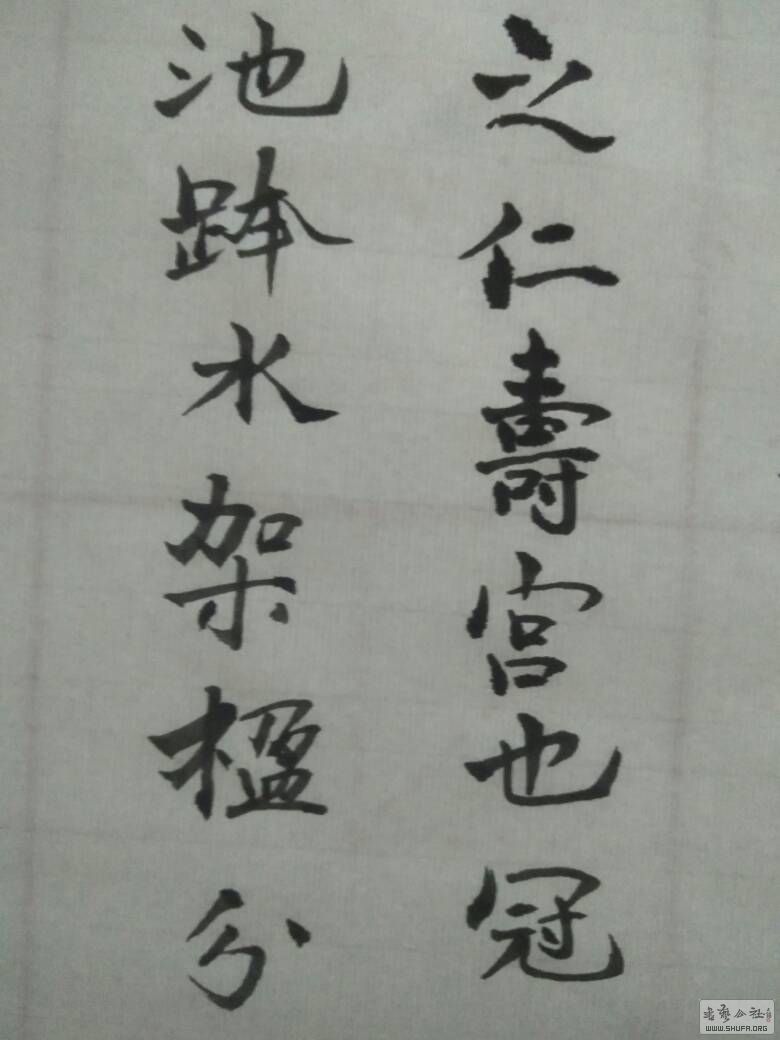 之仁壽宮也冠
池跨水架楹分
书艺公社
WWW.SHUFA.ORG